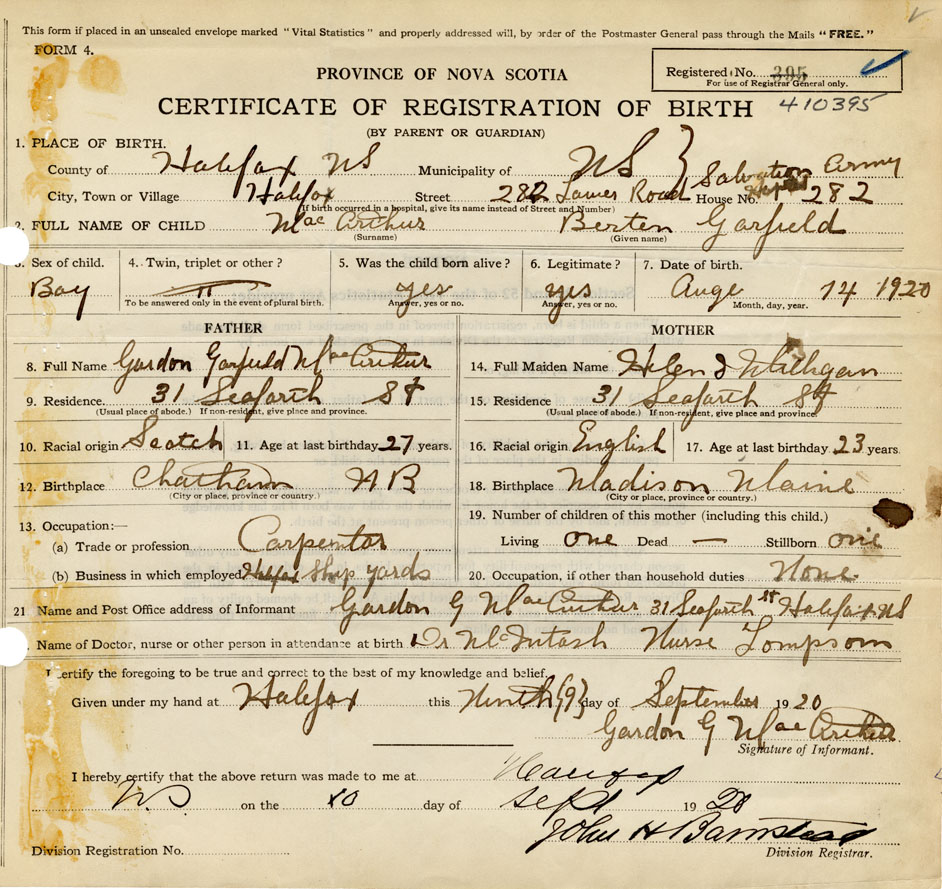 This form if placed in an unsealed envelope marked "Vital Statistics" and properly addressed will, by order of the Postmaster General pass through the Mails "FREE."
FORM 4.
PROVINCE OF NOVA SCOTIA
Registered No. 395
For use of Registrar General only.
CERTIFICATE OF REGISTRATION OF BIRTH 410395
(BY PARENT OR GUARDIAN)
1. PLACE OF BIRTH.
County of Halifax NS Municipality of NS } Salvation Army
City, Town or Village Halifax Street 282 Tower Road House No. 282
(If birth occurred in a hospital, give its name instead of Street and Number)
2. FULL NAME OF CHILD MacArthur Berten Garfield
(Surname) (Given name)
3. Sex of child. 4. Twin, triplet or other ? 5. Was the child born alive? 6. Legitimate? 7. Date of birth.
Boy yes yes Auge 14 1920
To be answered only in the event of plural birth. Answer, yes or no. Answer, yes or no. Month, day, year.
FATHER MOTHER
8. Full Name Gardon Garfield MacArthur 14. Full Maiden Name Helen J Milligan
9. Residence. 31 Seaforth St 15. Residence 31 Seaforth St
(Usual place of abode.) If non-resident, give place and province. (Usual place of abode.) If non-resident, give place and province.
10. Racial origin Scotch 11. Age at last birthday 27 years. 16. Racial origin English 17. Age at last birthday 23 years.
12. Birthplace Chatham NB 18. Birthplace Madison Maine
(City or place, province or country.) (City or place, province or country.)
13. Occupation:— 19. Number of children of this mother (including this child.)
(a) Trade or profession Carpentar Living one Dead — Stillborn one
(b) Business in which employed Halifax Ship yards 20. Occupation, if other than household duties None
21 Name and Post Office address of Informant Gardon G MacArthur 31 Seaforth St Halifax NS
Name of Doctor, nurse or other person in attendance at birth Dr McIntosh Nurse Tompson
I certify the foregoing to be true and correct to the best of my knowledge and belief.
Given under my hand at Halifax this Ninth (9) day of September 1920
Gardon G MacArthur
Signature of Informant.
I hereby certify that the above return was made to me at Halifax
NS on the 10 day of Sept 1920
John H Barnstead
Division Registrar.
Division Registration No.